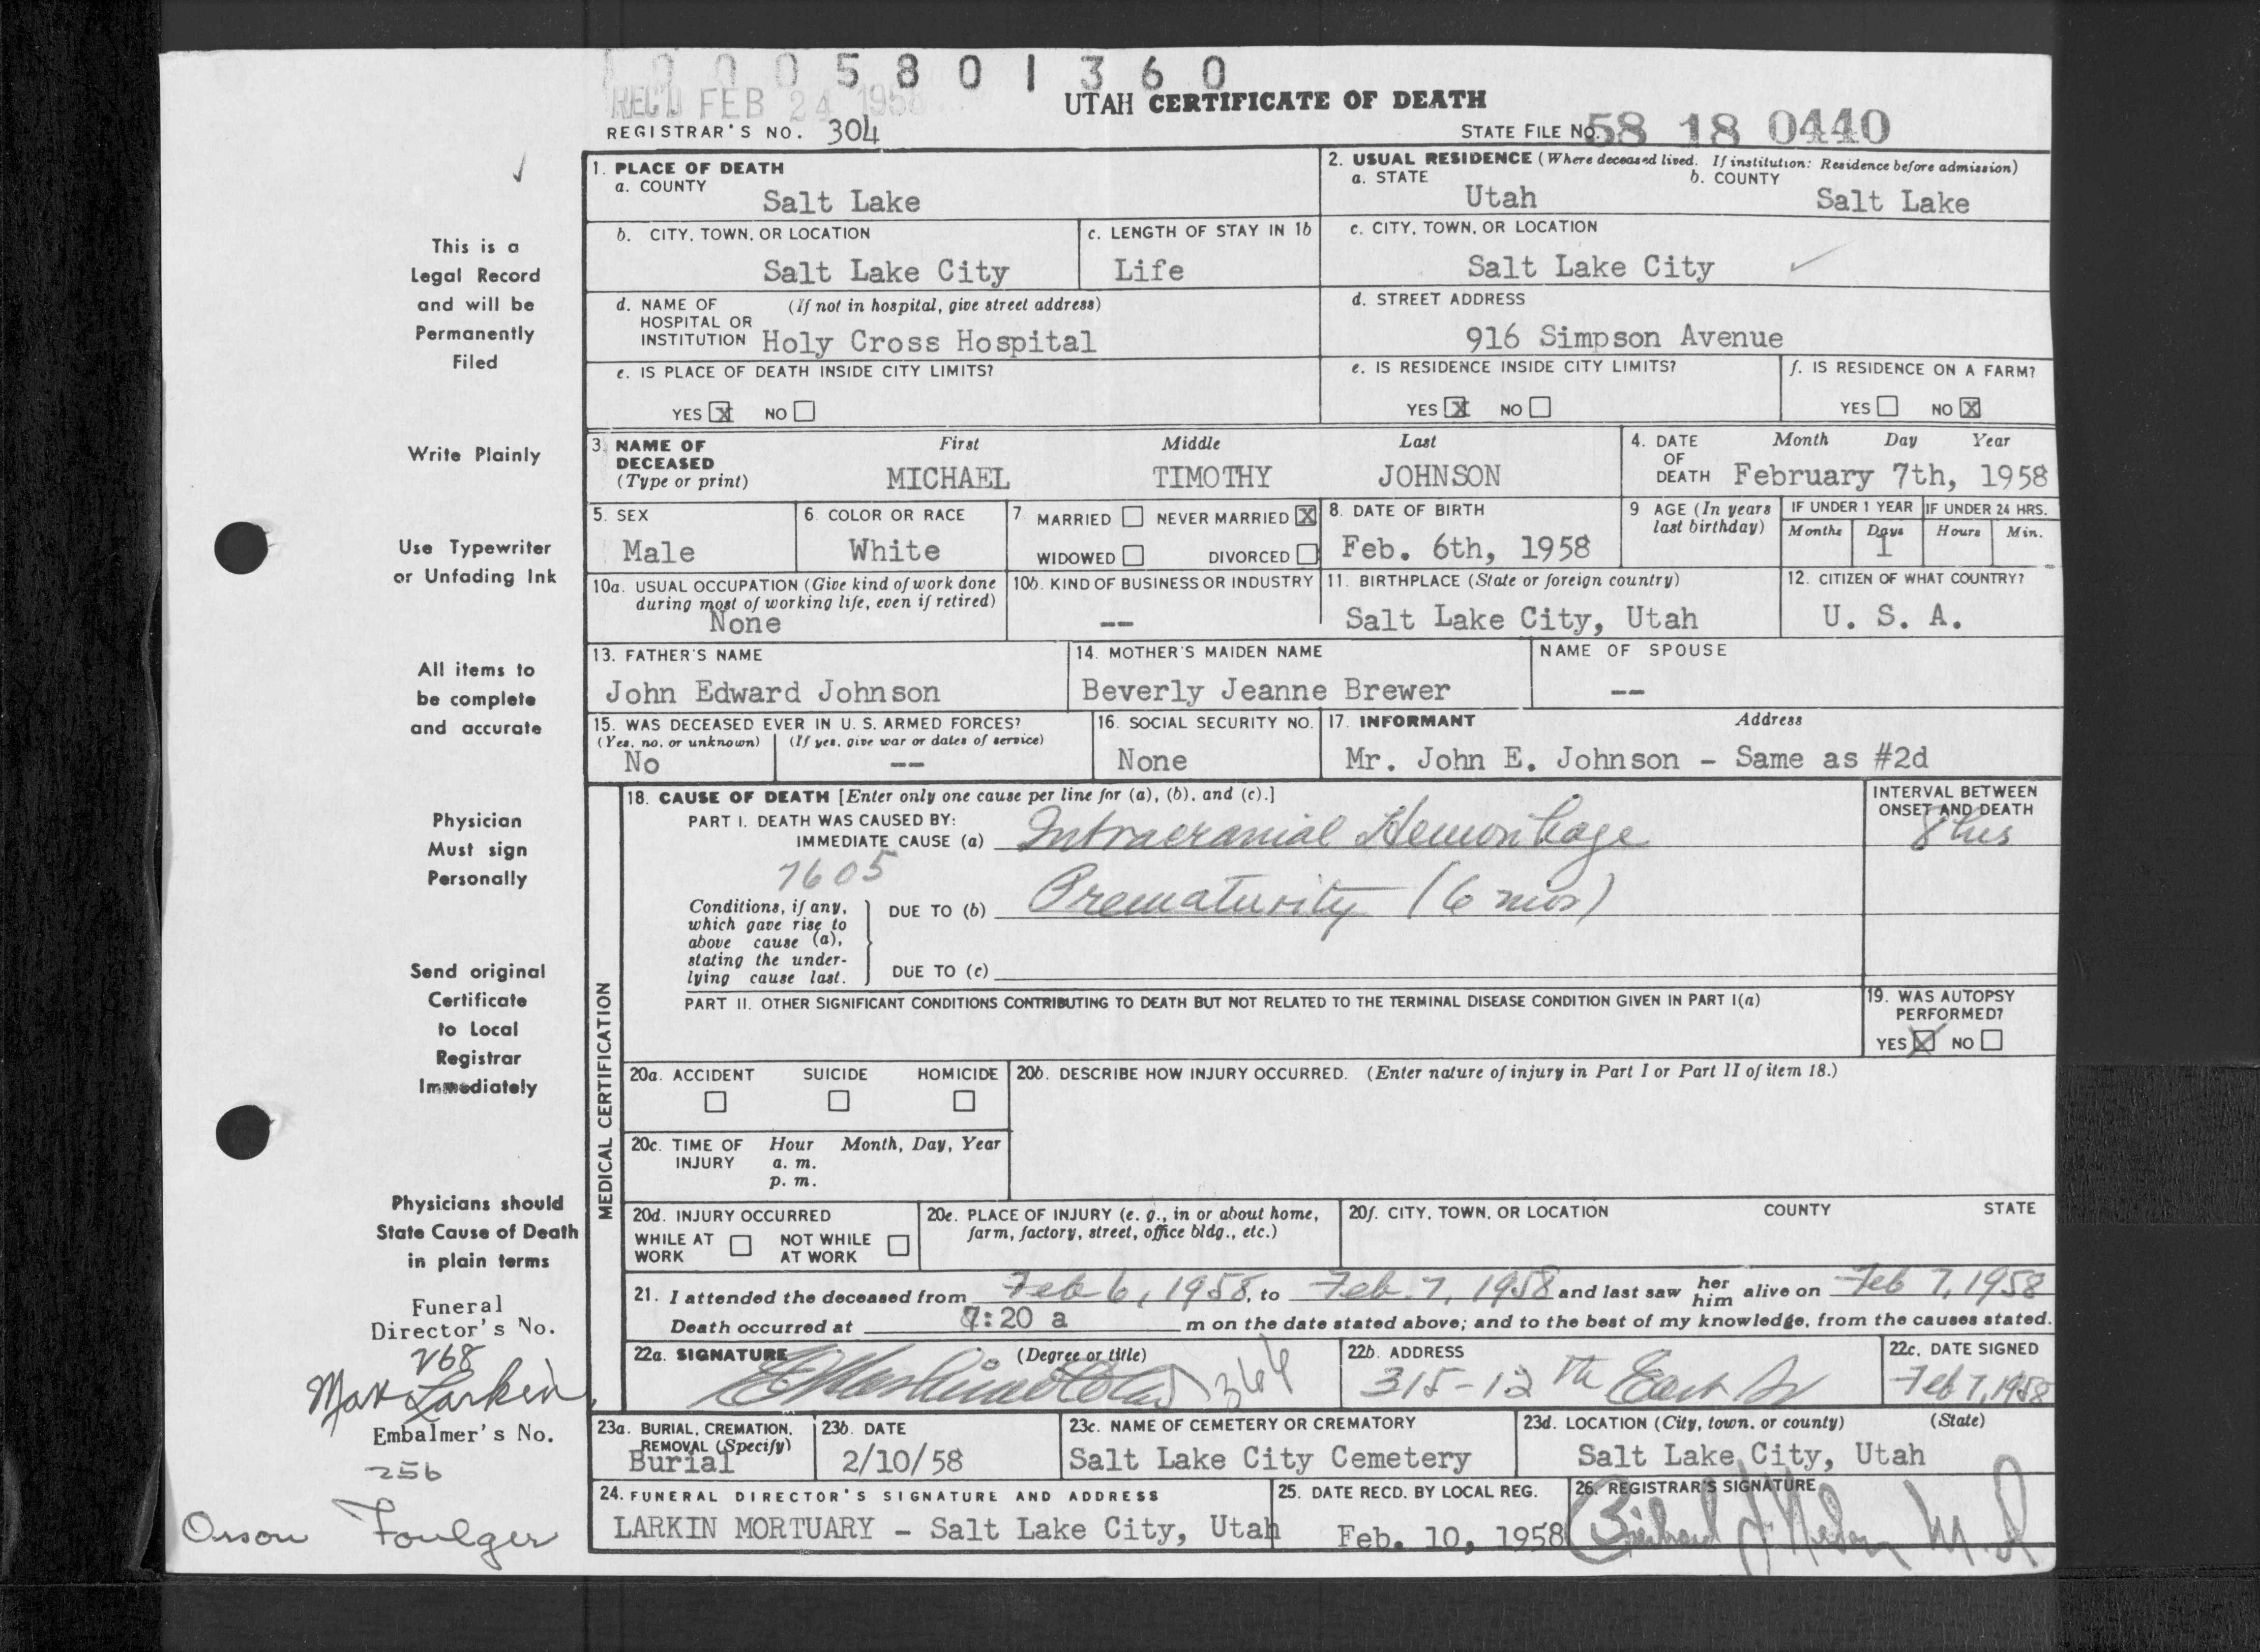 0 0 0 5 8 0 1 3 6 0
REC'D FEB 24 1958
UTAH CERTIFICATE OF DEATH
REGISTRAR'S NO. 304
STATE FILE NO. 58 18 0440
1. PLACE OF DEATH
a. COUNTY
Salt Lake
2. USUAL RESIDENCE (Where deceased lived. If institution: Residence before admission)
a. STATE b. COUNTY
Utah Salt Lake
b. CITY, TOWN, OR LOCATION
Salt Lake City
c. LENGTH OF STAY IN 1b
Life
c. CITY, TOWN, OR LOCATION
Salt Lake City
d. NAME OF (If not in hospital, give street address)
HOSPITAL OR
INSTITUTION Holy Cross Hospital
d. STREET ADDRESS
916 Simpson Avenue
e. IS PLACE OF DEATH INSIDE CITY LIMITS?
YES X NO
e. IS RESIDENCE INSIDE CITY LIMITS?
YES X NO
f. IS RESIDENCE ON A FARM?
YES NO X
3. NAME OF DECEASED (Type or print)
First Middle Last
MICHAEL TIMOTHY JOHNSON
4. DATE OF DEATH
Month Day Year
February 7th, 1958
5. SEX
Male
6. COLOR OR RACE
White
7 MARRIED NEVER MARRIED X
WIDOWED DIVORCED
8. DATE OF BIRTH
Feb. 6th, 1958
9 AGE (In years last birthday)
IF UNDER 1 YEAR
Months Days
1
IF UNDER 24 HRS.
Hours Min.
10a. USUAL OCCUPATION (Give kind of work done during most of working life, even if retired)
None
10b. KIND OF BUSINESS OR INDUSTRY
--
11. BIRTHPLACE (State or foreign country)
Salt Lake City, Utah
12. CITIZEN OF WHAT COUNTRY?
U. S. A.
13. FATHER'S NAME
John Edward Johnson
14. MOTHER'S MAIDEN NAME
Beverly Jeanne Brewer
NAME OF SPOUSE
--
15. WAS DECEASED EVER IN U. S. ARMED FORCES?
(Yes, no, or unknown) (If yes, give war or dates of service)
No --
16. SOCIAL SECURITY NO.
None
17. INFORMANT Address
Mr. John E. Johnson - Same as #2d
MEDICAL CERTIFICATION
18. CAUSE OF DEATH [Enter only one cause per line for (a), (b), and (c).]
PART I. DEATH WAS CAUSED BY:
IMMEDIATE CAUSE (a) Intracranial Hemorrhage
INTERVAL BETWEEN
ONSET AND DEATH
8 hrs
7605
Conditions, if any,
which gave rise to
above cause (a),
stating the under-
lying cause last.
DUE TO (b) Prematurity (6 mos)
DUE TO (c)
PART II. OTHER SIGNIFICANT CONDITIONS CONTRIBUTING TO DEATH BUT NOT RELATED TO THE TERMINAL DISEASE CONDITION GIVEN IN PART I(a)
19. WAS AUTOPSY
PERFORMED?
YES X NO
20a. ACCIDENT SUICIDE HOMICIDE
20b. DESCRIBE HOW INJURY OCCURRED. (Enter nature of injury in Part I or Part II of item 18.)
20c. TIME OF INJURY
Hour Month, Day, Year
a. m.
p. m.
20d. INJURY OCCURRED
WHILE AT WORK NOT WHILE AT WORK
20e. PLACE OF INJURY (e. g., in or about home,
farm, factory, street, office bldg., etc.)
20f. CITY, TOWN, OR LOCATION COUNTY STATE
21. I attended the deceased from Feb 6, 1958, to Feb. 7, 1958 and last saw her him alive on Feb 7, 1958
Death occurred at 7:20 a m on the date stated above; and to the best of my knowledge, from the causes stated.
22a. SIGNATURE (Degree or title)
364
22b. ADDRESS
315-12th East St
22c. DATE SIGNED
Feb 7, 1958
23a. BURIAL, CREMATION,
REMOVAL (Specify)
Burial
23b. DATE
2/10/58
23c. NAME OF CEMETERY OR CREMATORY
Salt Lake City Cemetery
23d. LOCATION (City, town, or county) (State)
Salt Lake City, Utah
24. FUNERAL DIRECTOR'S SIGNATURE AND ADDRESS
LARKIN MORTUARY - Salt Lake City, Utah
25. DATE RECD. BY LOCAL REG.
Feb. 10, 1958
26. REGISTRAR'S SIGNATURE
M. D
This is a
Legal Record
and will be
Permanently
Filed
Write Plainly
Use Typewriter
or Unfading Ink
All items to
be complete
and accurate
Physician
Must sign
Personally
Send original
Certificate
to Local
Registrar
Immediately
Physicians should
State Cause of Death
in plain terms
Funeral
Director's No.
268
Max Larkin
Embalmer's No.
256
Orson Foulger